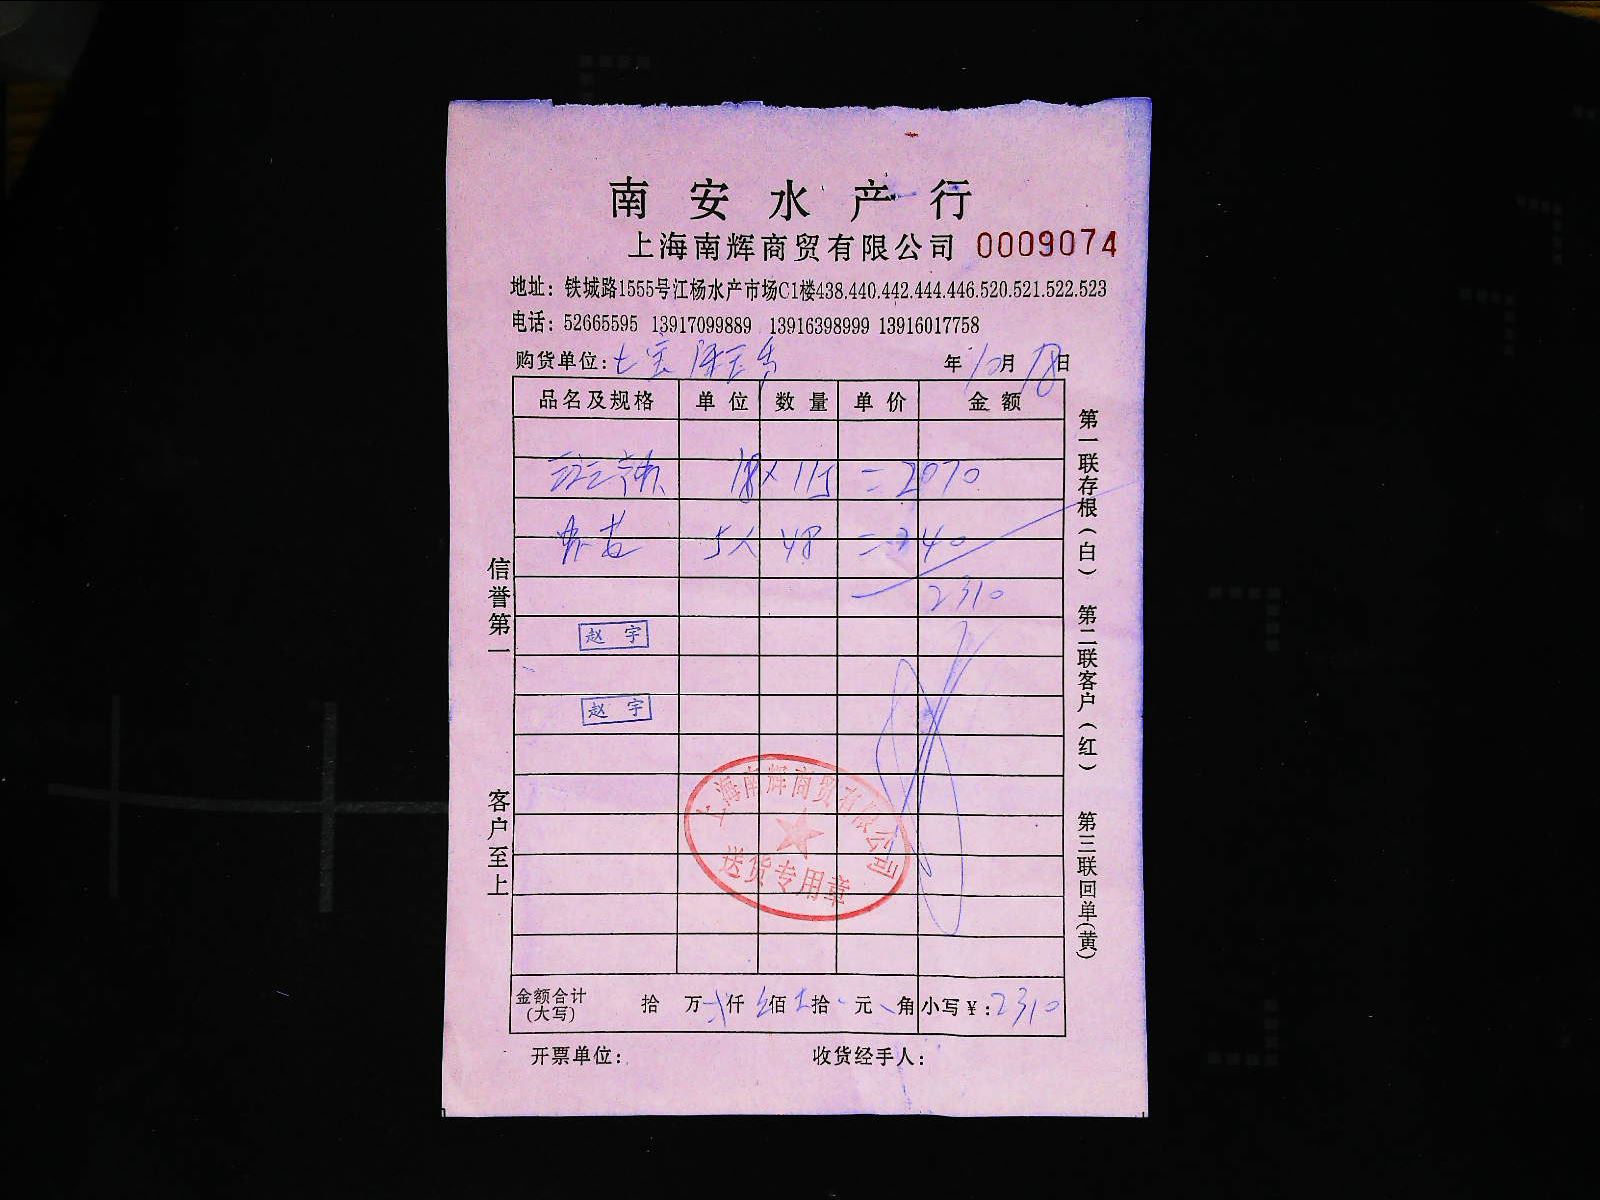 南安水产行
上海南辉商贸有限公司 0009074
地址：铁城路1555号江杨水产市场C1楼438.440.442.444.446.520.521.522.523
电话：52665595 13917099889 13916398999 13916017758
购货单位：七宝 年10月18日
品名及规格 单位 数量 单价 金额
18×115=2070
5×48=240
2310
赵宇
赵宇
上海南辉商贸有限公司
送货专用章
金额合计(大写) 拾 万 仟 佰 拾 元 角 小写￥：2310
开票单位： 收货经手人：
信誉第一 客户至上
第一联存根(白) 第二联客户(红) 第三联回单(黄)